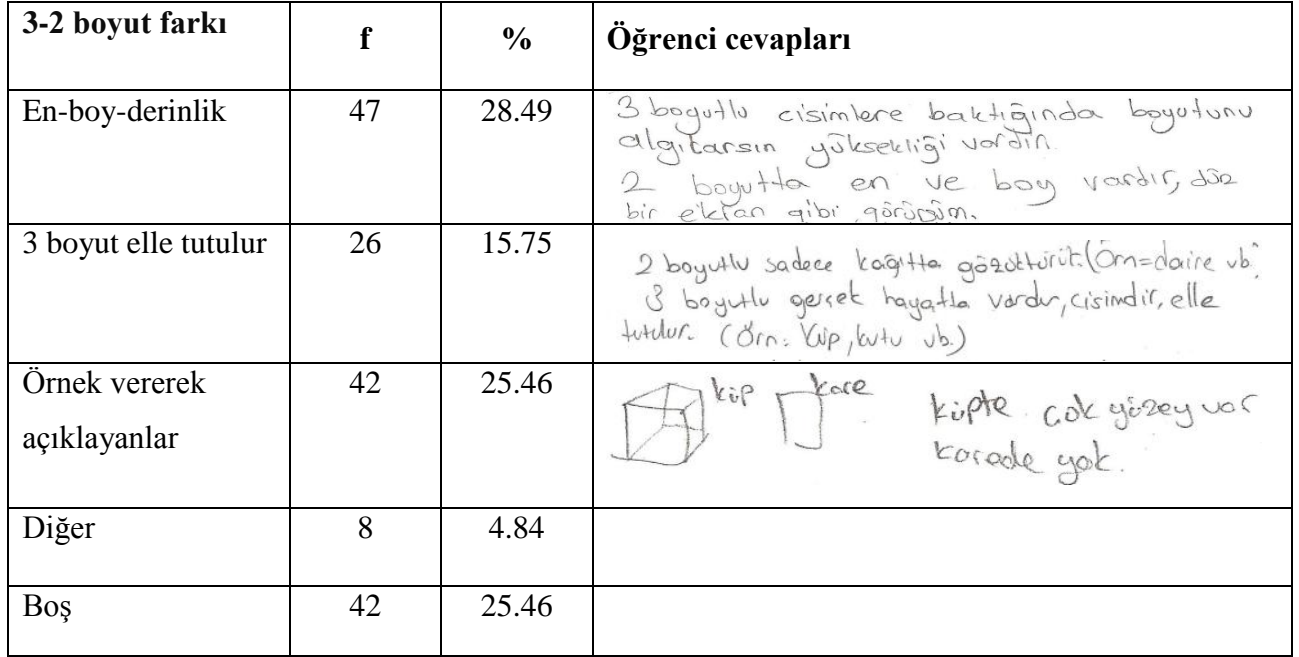 3-2 boyut farkı f % Öğrenci cevapları
En-boy-derinlik 47 28.49
3 boyutlu cisimlere baktığında boyutunu
algılarsın yüksekliği vardır.
2 boyutta en ve boy vardır, düz
bir ekran gibi
3 boyut elle tutulur 26 15.75
2 boyutlu sadece kağıtta (Örn=daire vb.
3 boyutlu gerçek hayatta vardır, cisimdir, elle
tutulur. (Örn: Küp, kutu vb.)
Örnek vererek 42 25.46
açıklayanlar
küp kare
küpte çok yüzey var
karede yok.
Diğer 8 4.84
Boş 42 25.46